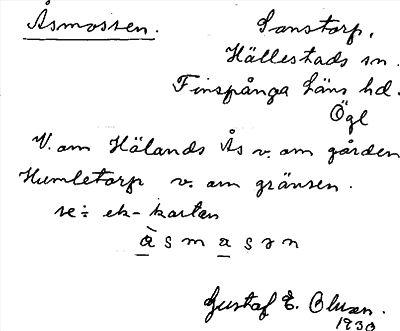 Åsmossen.
Sanstorp,
Hällestads sn.
Finspånga läns hd.
Ögl
V. om Hälands Ås v. om gården
Humletorp v. om gränsen.
se ÷ ek-kartan
å s m a s ə n
Gustaf E.
1930